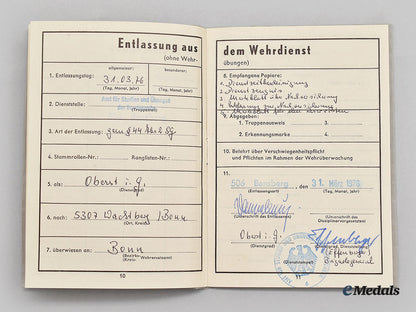 Entlassung aus
(ohne Wehr-
1. Entlassungstag:
allgemeiner:
besonderer:
31.03.76
(Tag, Monat, Jahr)
(Tag, Monat, Jahr)
2. Dienststelle:
Amt für Studien und Übungen
der Bundeswehr
(Truppenteil)
3. Art der Entlassung:
gem § 44 Abs 2 SG
4. Stammrollen-Nr.:
Ranglisten-Nr.:
5. als:
Oberst i.G.
(Dienstgrad)
6. nach:
5307 Wachtberg / Bonn
(Ort, Kreis)
7. überwiesen an:
Bonn
(Bezirks-
(Kreis-
Wehrersatzamt)
10
dem Wehrdienst
übungen)
8. Empfangene Papiere:
1. Dienstzeitbescheinigung
2. Dienstzeugnis
3. Merkblatt über
4.
9. Abgegeben:
1. Truppenausweis
3.
2. Erkennungsmarke
4.
10. Belehrt über Verschwiegenheitspflicht
und Pflichten im Rahmen der Wehrüberwachung
11.
506 Bensberg
, den
31. März 1976
(Unterschrift des
Disziplinarvorgesetzten)
Oberst i.G.
(Dienstgrad)
(Dienstgrad, Dienststellung)
Brigadegeneral
(Dienststempel)
11
eMedals